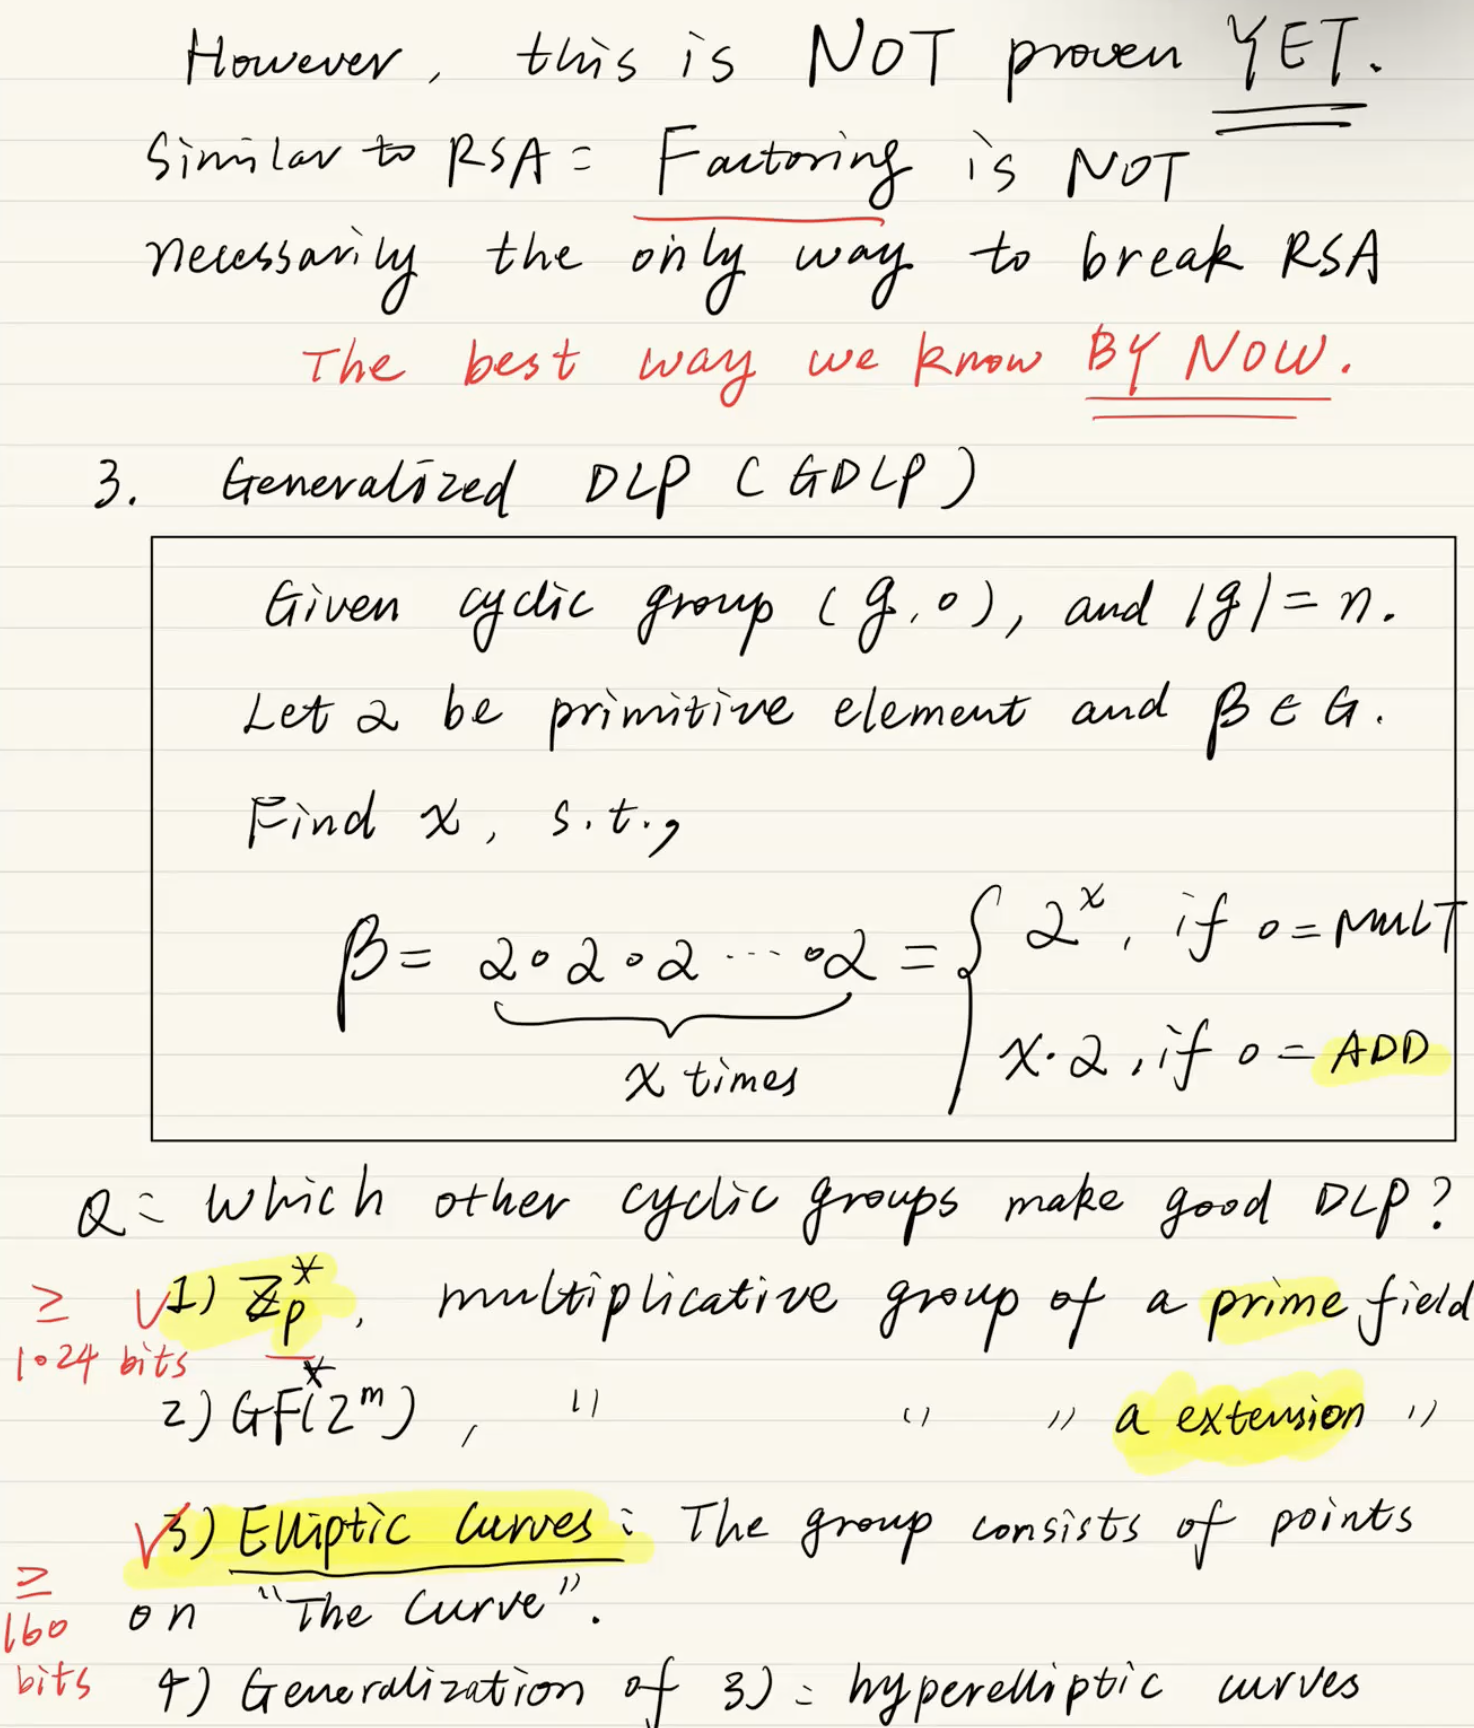 However, this is NOT proven YET.
Similar to RSA: Factoring is NOT
necessarily the only way to break RSA
The best way we know BY NOW.
3. Generalized DLP (GDLP)
Given cyclic group (g, ∘), and |g| = n.
Let α be primitive element and β ∈ G.
Find x, s.t.,
β = α∘α∘α ··· ∘α = { α^x, if ∘ = MULT
x times
x·α, if ∘ = ADD
Q: Which other cyclic groups make good DLP?
≥ 1024 bits √ 1) Z_p^*, multiplicative group of a prime field
2) GF(2^m)^*, " " " a extension "
√ 3) Elliptic Curves: The group consists of points
≥ 160 bits
on "The Curve".
4) Generalization of 3): hyperelliptic curves